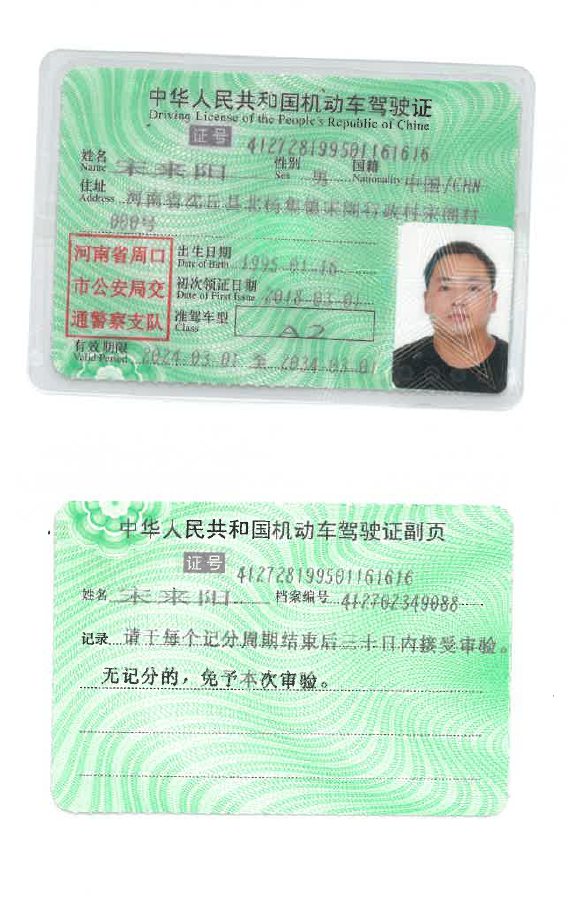 中华人民共和国机动车驾驶证
Driving License of the People's Republic of China
证号 412728199501161616
姓名 Name 宋来阳 性别 Sex 男 国籍 Nationality 中国/CHN
住址 Address 河南省沈丘县北杨集镇宋阁行政村宋阁村
000号
河南省周口
市公安局交
通警察支队
出生日期 Date of Birth 1995-01-16
初次领证日期 Date of First Issue 2018-03-01
准驾车型 Class A2
有效期限 Valid Period 2024-03-01 至 2034-03-01
中华人民共和国机动车驾驶证副页
证号 412728199501161616
姓名 宋来阳 档案编号 412702349088
记录 请于每个记分周期结束后三十日内接受审验。
无记分的，免予本次审验。